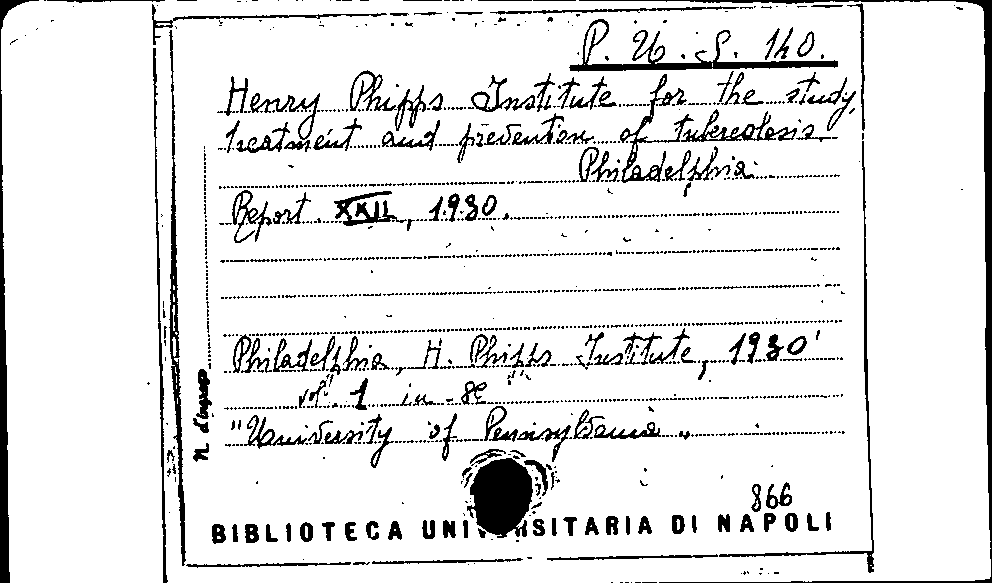 P. U. S. 140.
Henry Phipps Institute for the study,
treatment and prevention of tubercolosis.
Philadelphia.
Report. XXII, 1930.
Philadelphia, H. Phipps Institute, 1930
vol. 1 in-8º
"University of Pennsylvania"
N. d'ingresso
866
BIBLIOTECA UNIVERSITARIA DI NAPOLI